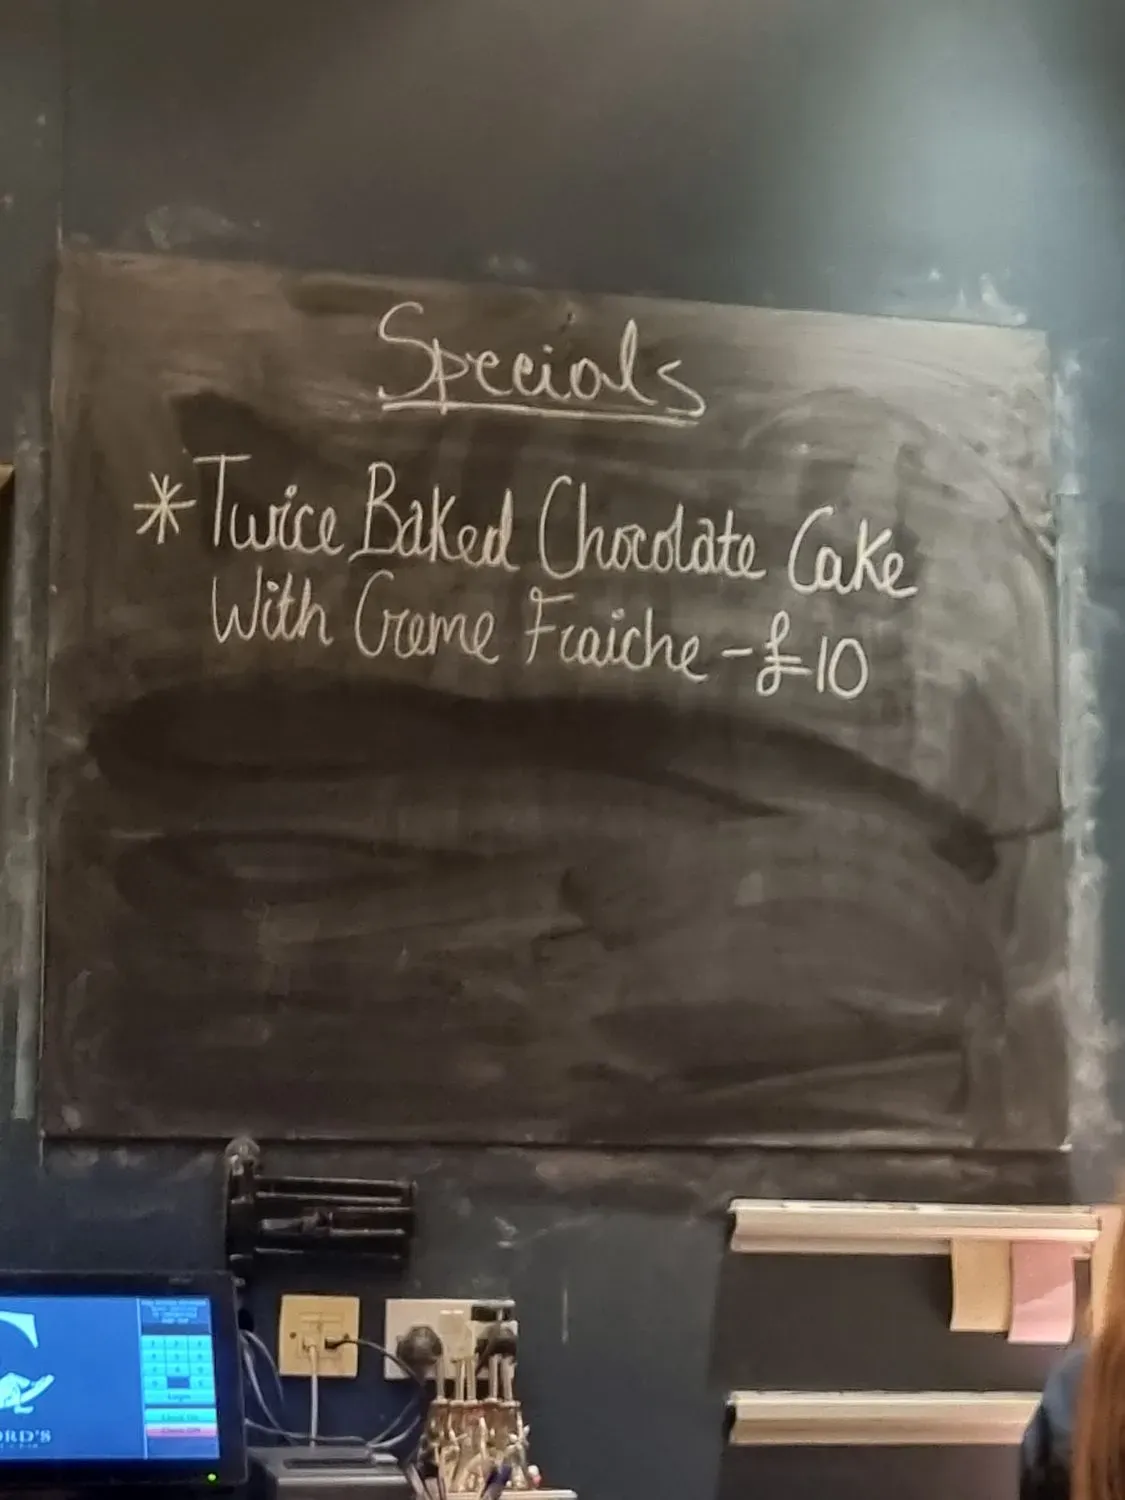 Specials
* Twice Baked Chocolate Cake
With Creme Fraiche - £10
ORD'S